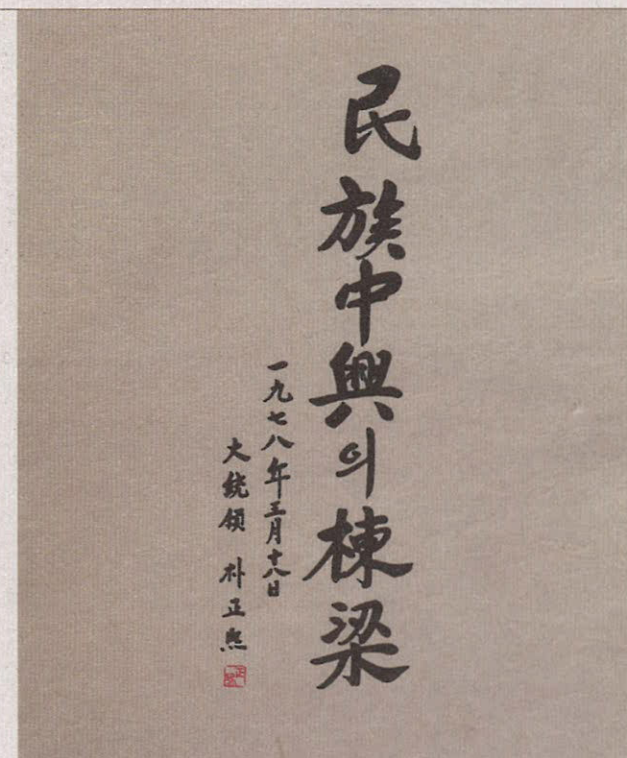 民族中興의棟梁
一九七八年三月十八日
大統領 朴正熙